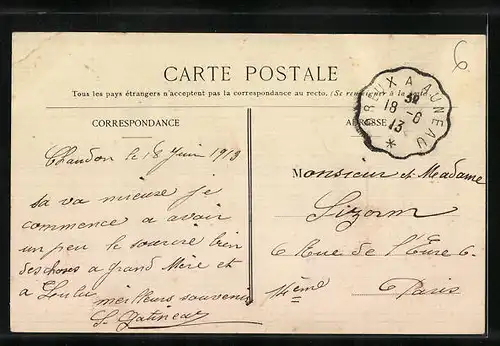 6
CARTE POSTALE
Tous les pays étrangers n'acceptent pas la correspondance au recto. (Se renseigner à la poste)
CORRESPONDANCE
ADRESSE
DREUX A AUNEAU
18 - 6
13
Chaudon le 18 Juin 1913
sa va mieuse je
commence a avoir
un peu le sourire bien
des choses a grand Mère et
a Loulu
meilleurs souvenir
S. Gatineau
Monsieur et Madame
6 Rue de l'Eure 6.
14eme
Paris